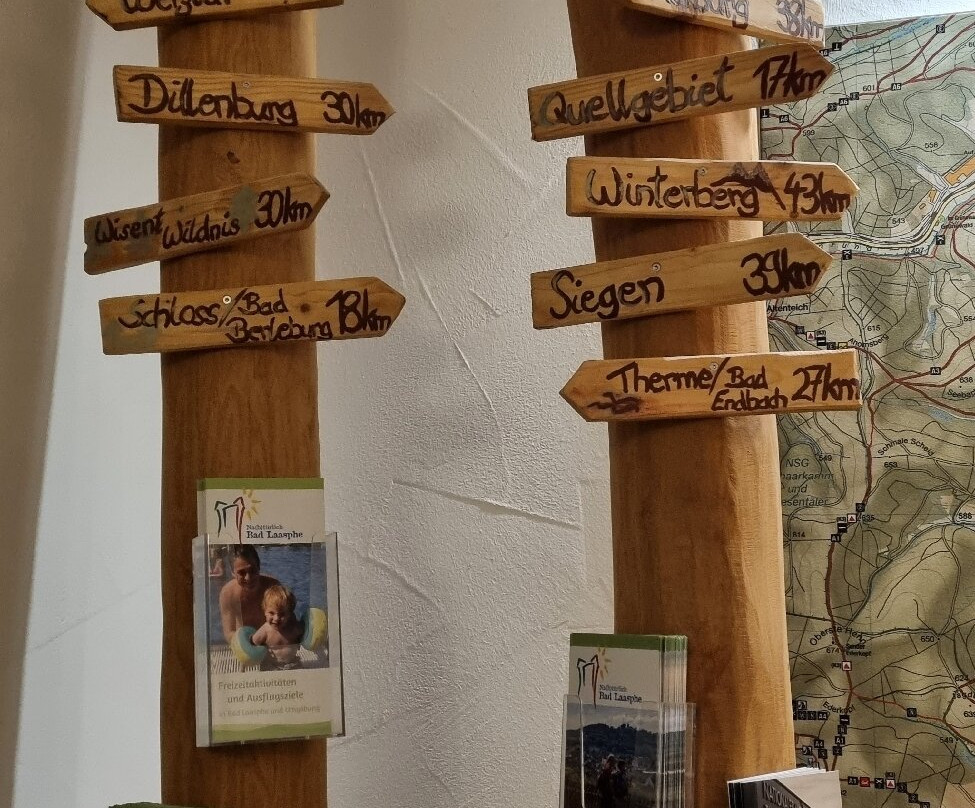 Dillenburg 30km
Wisent Wildnis 30km
Schloss/Bad
Berleburg 18km
38km
Quellgebiet 17km
Winterberg 43km
Siegen 39km
Therme/Bad
Endbach 27km
Bad Laasphe
Freizeitaktivitäten
und Ausflugsziele
in Bad Laasphe und Umgebung
Bad Laasphe
601
599
558
543
Altenteich
615
Schmale Scheid
653
NSG
und
549
635
588
614
650
674
Ederkopf